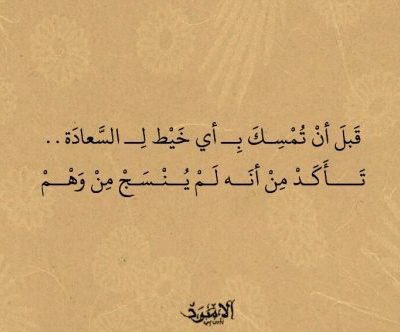 قَبلَ أنْ تُمْسِكَ بِـ أي خَيْط لِـ السَّعادَة . .
تَـأَكَدْ مِنْ أنَـه لَـمْ يُـنْـسَـجْ مِنْ وَهْـمْ